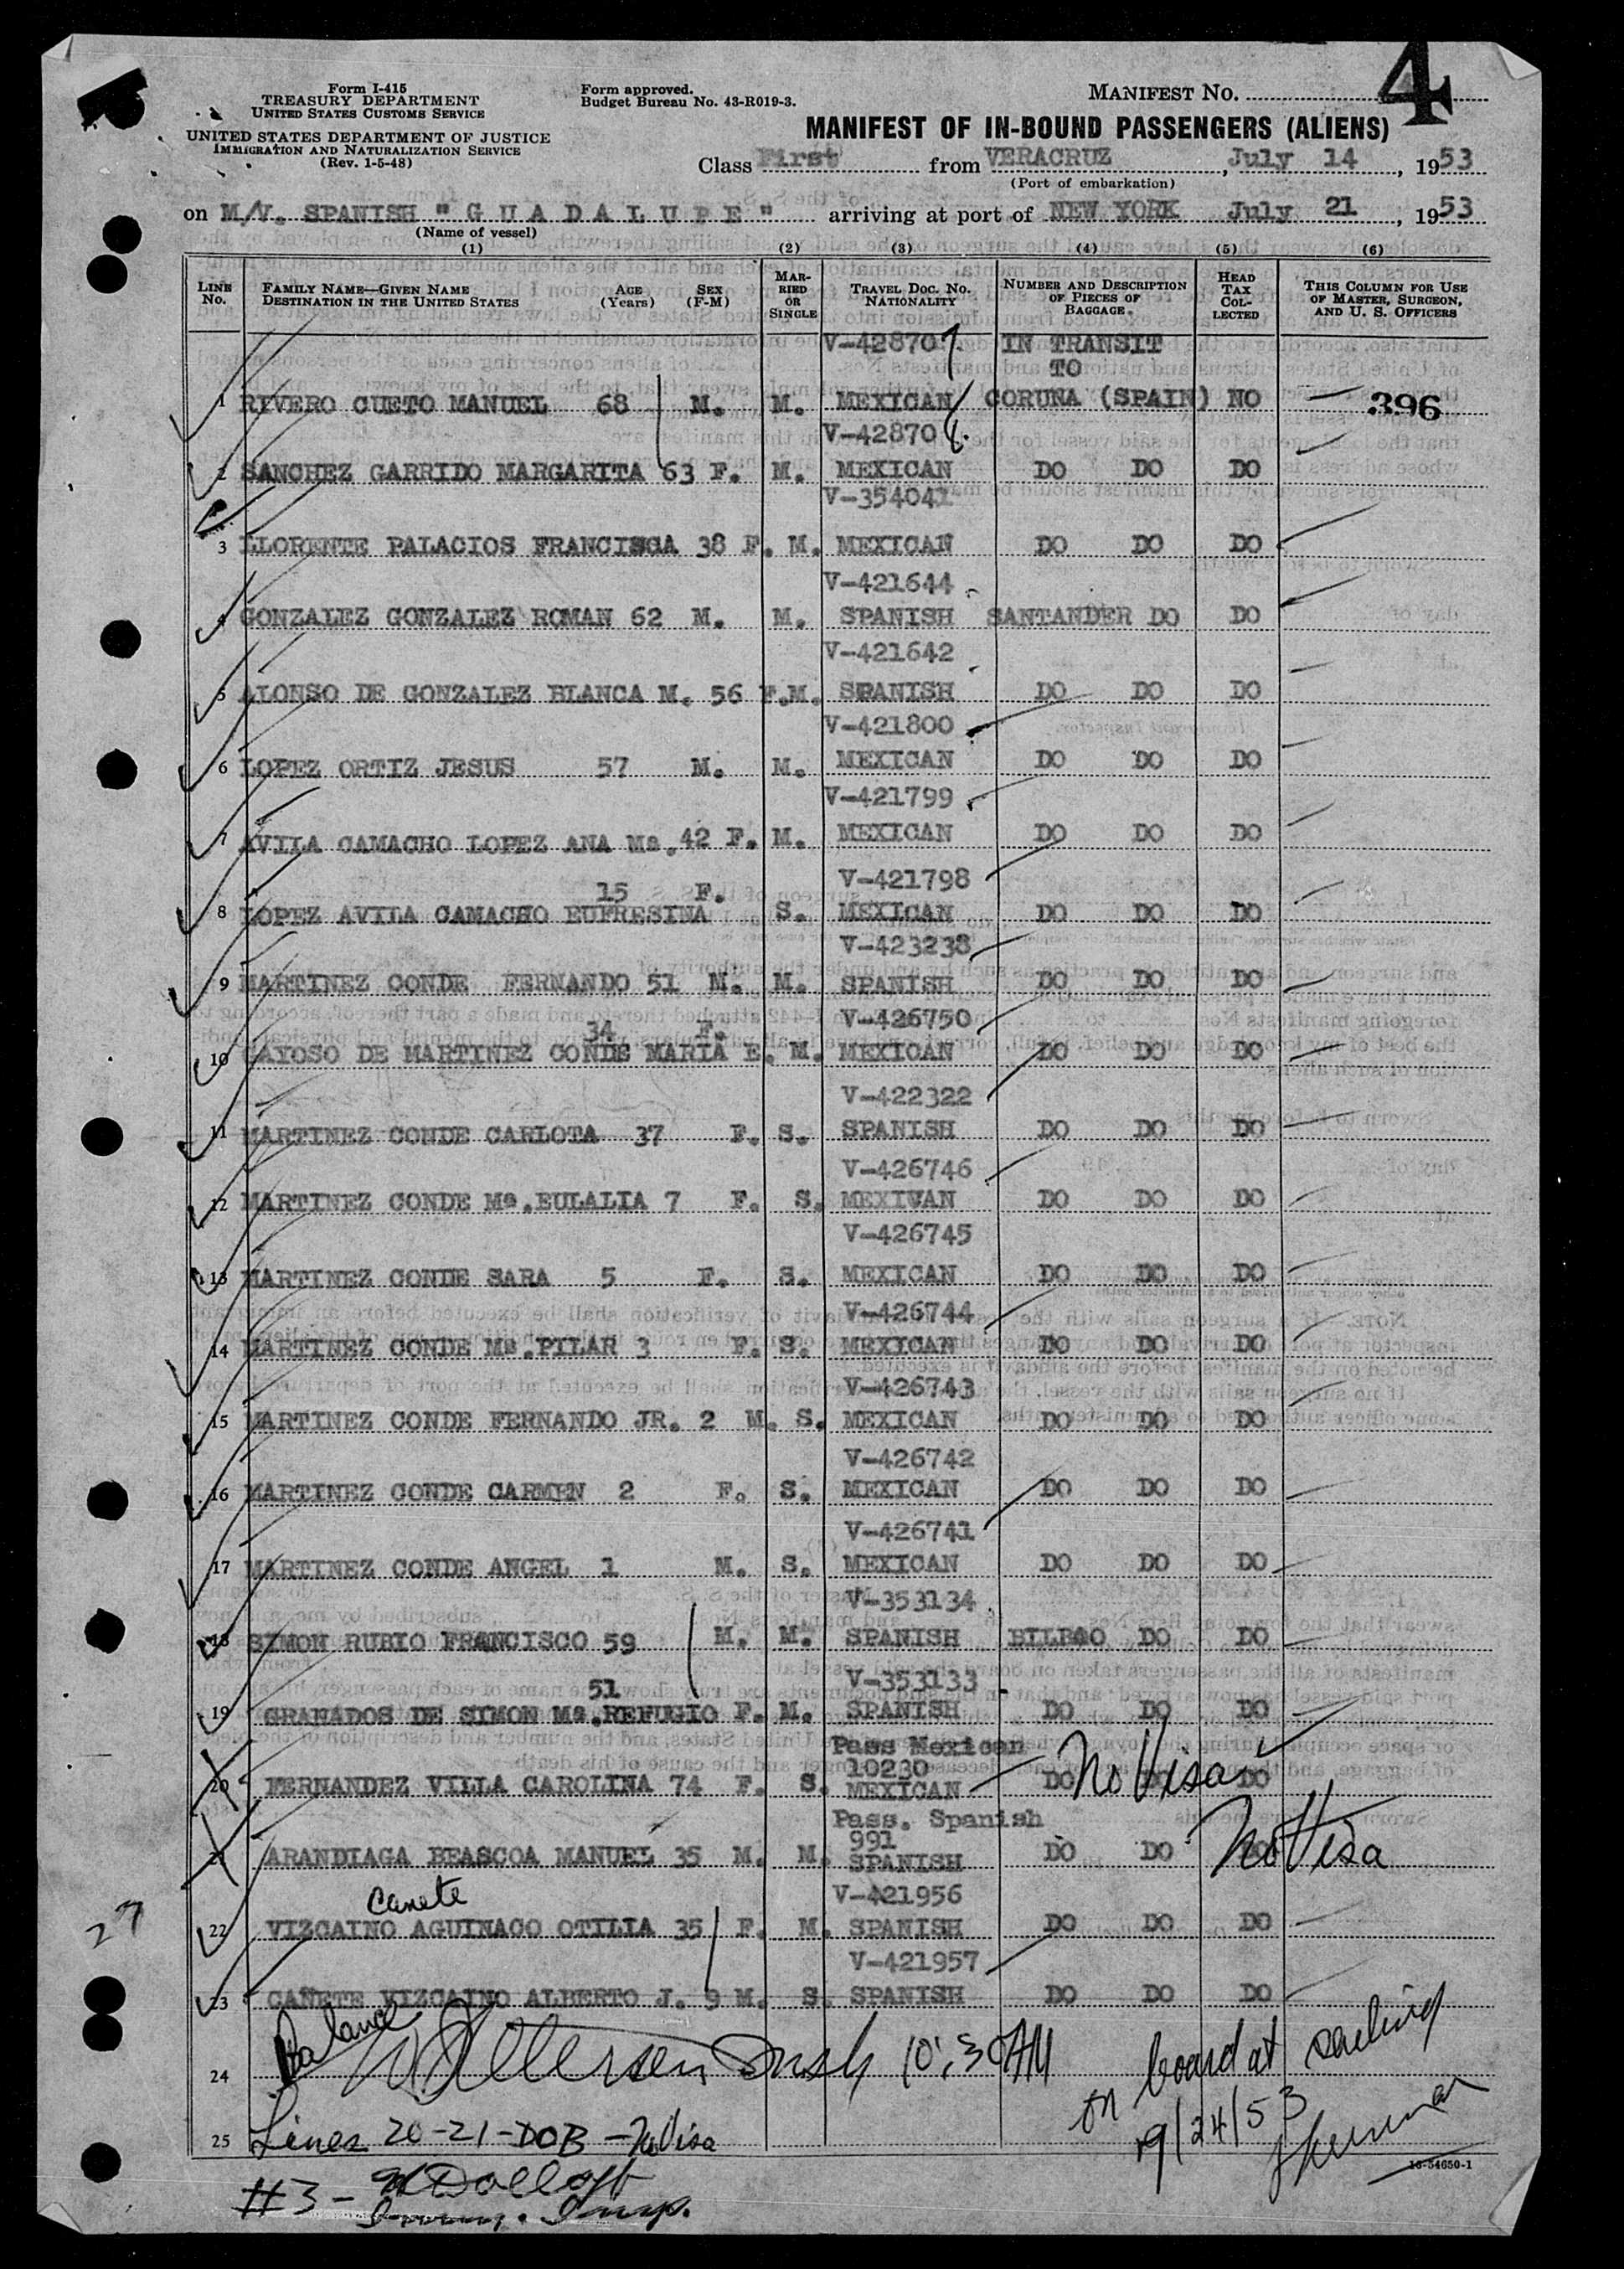 4
Form I-415
TREASURY DEPARTMENT
UNITED STATES CUSTOMS SERVICE
UNITED STATES DEPARTMENT OF JUSTICE
IMMIGRATION AND NATURALIZATION SERVICE
(Rev. 1-5-48)
Form approved.
Budget Bureau No. 43-R019-3.
MANIFEST NO.
MANIFEST OF IN-BOUND PASSENGERS (ALIENS)
Class First from VERACRUZ, July 14, 1953
(Port of embarkation)
on M/V. SPANISH "GUADALUPE" arriving at port of NEW YORK July 21, 1953
(Name of vessel)
(1) (2) (3) (4) (5) (6)
LINE No. FAMILY NAME—GIVEN NAME DESTINATION IN THE UNITED STATES AGE (Years) SEX (F-M) MARRIED OR SINGLE TRAVEL DOC. NO. NATIONALITY NUMBER AND DESCRIPTION OF PIECES OF BAGGAGE HEAD TAX COLLECTED THIS COLUMN FOR USE OF MASTER, SURGEON, AND U. S. OFFICERS
V-428707. IN TRANSIT
TO
1 RIVERO CUETO MANUEL 68 M. M. MEXICAN CORUNA (SPAIN) NO 396
V-42870
2 SANCHEZ GARRIDO MARGARITA 63 F. M. MEXICAN DO DO DO
V-354041
3 LLORENTE PALACIOS FRANCISCA 38 F. M. MEXICAN DO DO DO
V-421644
4 GONZALEZ GONZALEZ ROMAN 62 M. M. SPANISH SANTANDER DO DO
V-421642
5 ALONSO DE GONZALEZ BLANCA M. 56 F.M. SPANISH DO DO DO
V-421800
6 LOPEZ ORTIZ JESUS 57 M. M. MEXICAN DO DO DO
V-421799
7 AVILA CAMACHO LOPEZ ANA Mª. 42 F. M. MEXICAN DO DO DO
15 F. V-421798
8 LOPEZ AVILA CAMACHO EUFRESINA S. MEXICAN DO DO DO
V-423238
9 MARTINEZ CONDE FERNANDO 51 M. M. SPANISH DO DO DO
34 F. V-426750
10 GAYOSO DE MARTINEZ CONDE MARIA E. M. MEXICAN DO DO DO
V-422322
11 MARTINEZ CONDE CARLOTA 37 F. S. SPANISH DO DO DO
V-426746
12 MARTINEZ CONDE Mª.EULALIA 7 F. S. MEXIVAN DO DO DO
V-426745
13 MARTINEZ CONDE SARA 5 F. S. MEXICAN DO DO DO
V-426744
14 MARTINEZ CONDE Mª.PILAR 3 F. S. MEXICAN DO DO DO
V-426743
15 MARTINEZ CONDE FERNANDO JR. 2 M. S. MEXICAN DO DO DO
V-426742
16 MARTINEZ CONDE CARMEN 2 F. S. MEXICAN DO DO DO
V-426741
17 MARTINEZ CONDE ANGEL 1 M. S. MEXICAN DO DO DO
V-353134
18 SIMON RUBIO FRANCISCO 59 M. M. SPANISH BILBAO DO DO
51 V-353133
19 GRANADOS DE SIMON Mª.REFUGIO F. M. SPANISH DO DO DO
Pass Mexican
10230
20 FERNANDEZ VILLA CAROLINA 74 F. S. MEXICAN DO DO DO No Visa
Pass. Spanish
991
21 ARANDIAGA BEASCOA MANUEL 35 M. M. SPANISH DO DO DO No Visa
Canete V-421956
22 VIZCAINO AGUINACO OTILIA 35 F. M. SPANISH DO DO DO
27
V-421957
23 CAÑETE VIZCAINO ALBERTO J. 9 M. S. SPANISH DO DO DO
Balance
24 Insp 10:30 AM on board at sailing
25 Lines 20-21-DOB-No Visa 9/24/53
16-54650-1
#3 -
Immig. Insp.